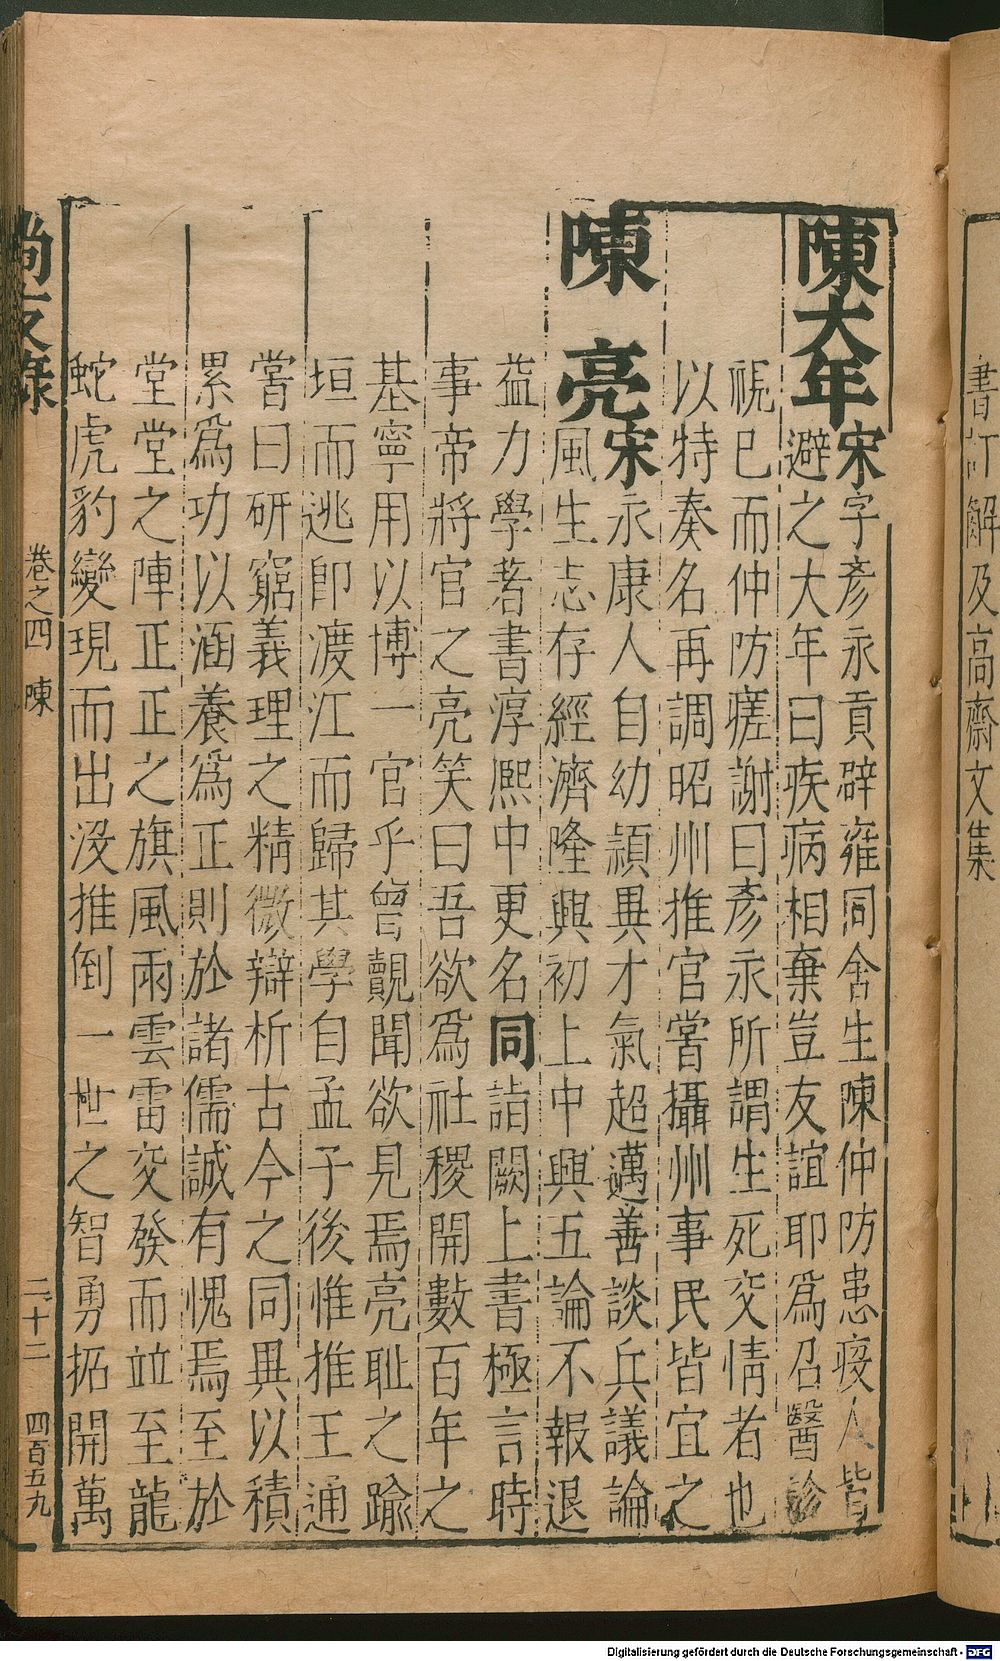 書訂解及高齋文集
陳大年宋字彥永貢辟雍同舍生陳仲防患疫人皆
避之大年曰疾病相棄豈友誼耶爲召醫診
視已而仲防瘥謝曰彥永所謂生死交情者也
以特奏名再調昭州推官嘗攝州事民皆宜之
陳亮宋永康人自幼頴異才氣超邁善談兵議論
風生志存經濟隆興初上中興五論不報退
益力學著書淳熙中更名同詣闕上書極言時
事帝將官之亮笑曰吾欲爲社稷開數百年之
基寧用以博一官乎曾覿聞欲見焉亮耻之踰
垣而逃卽渡江而歸其學自孟子後惟推王通
嘗曰研窮義理之精微辯析古今之同異以積
累爲功以涵養爲正則於諸儒誠有愧焉至於
堂堂之陣正正之旗風雨雲雷交發而並至龍
蛇虎豹變現而出没推倒一世之智勇拓開萬
尚友錄 卷之四 陳 二十二 四百五九
Digitalisierung gefördert durch die Deutsche Forschungsgemeinschaft - DFG